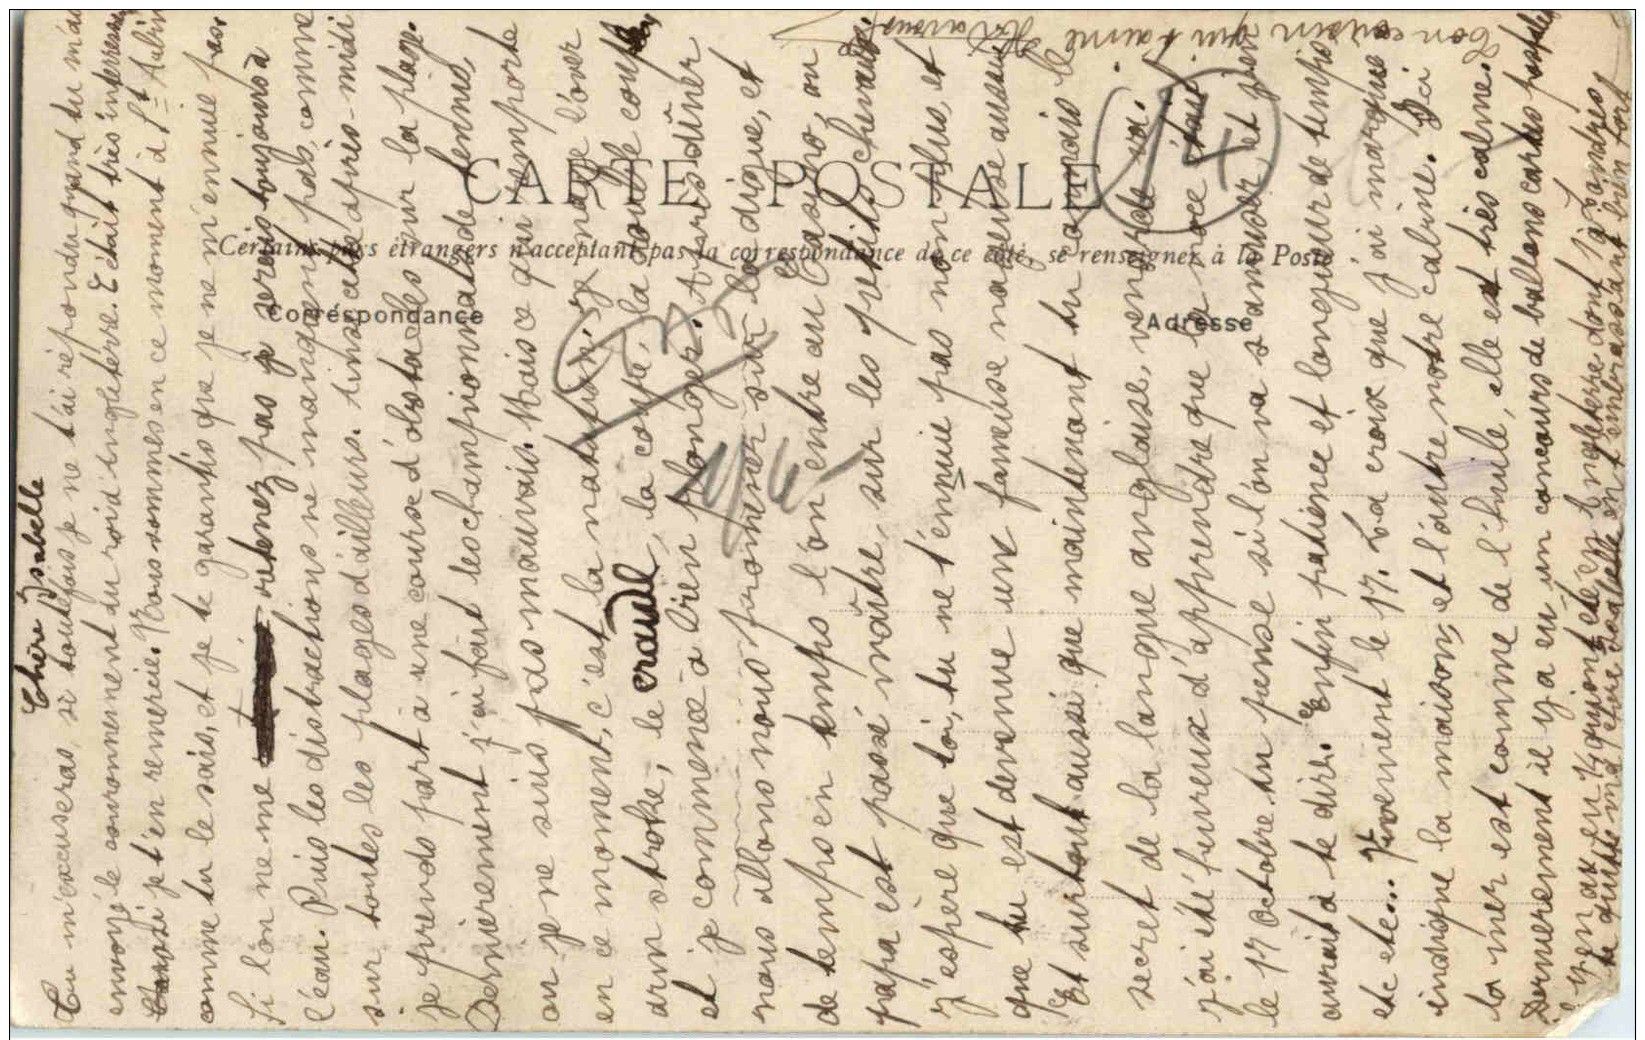 CARTE POSTALE
Certains pays étrangers n'acceptant pas la correspondance de ce côté, se renseigner à la Poste
Correspondance
Adresse
14
1/4
Chère Isabelle
Tu m'excuseras, si toutefois je ne t'ai répondu quand tu m'as
envoyé le couronnement du roi d'angleterre. C'était très intéressant
je t'en remercie. Nous sommes en ce moment à St Aubin
comme tu le sais, et je te garantis que je ne m'ennuie pas.
Si l'on ne me retenez pas je serais toujours à
l'eau. Puis les distractions ne manquent pas, comme
sur toutes les plages d'ailleurs. Ainsi cet après-midi
je prends part à une course d'obstacles sur la plage.
Dernièrement j'ai fait les championnat de tennis,
où je ne suis pas mauvais. Mais ce qui l'emporte
en ce moment, c'est la natation; je nage l'over
arm stroke, le crawll, la coupe, la double coupe
et je commence à bien plonger. Après dîner
nous allons nous promener sur la digue, et
de temps en temps l'on entre au Casino, où
papa est passé maître, sur les petits chevaux.
J'espère que toi, tu ne t'ennuie pas non plus, et
que tu est devenue une fameuse nageuse aussi.
Et surtout aussi que maintenant tu connais le
secret de la langue anglaise, rengarde va.
J'ai été heureux d'apprendre que le noce était
le 17 Octobre. tu pense si l'on va s'amuser, et j'en
aurait à te dire. Enfin patience et longueur de temps
etc etc... Vivement le 17. La croix que j'ai marquée
indique la maison, et l'autre notre cabine. Ici
la mer est comme de l'huile, elle est très calme.
Dernièrement il y a eu un concours de ballons cartes postales
il y en a eu 14 qui ont été en Angleterre dont 1 à Londres
Je quitte ma chère Isabelle en t'embrassant bien fort
Ton cousin qui t'aime